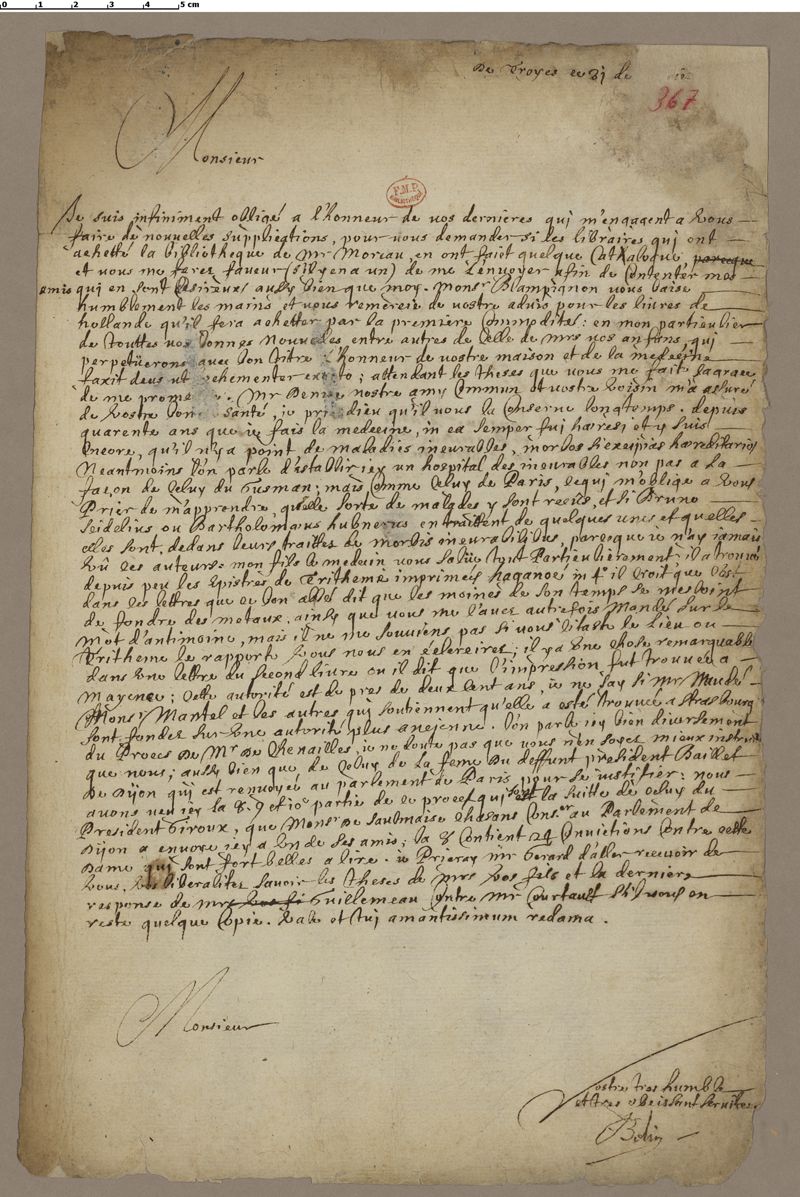 0 1 2 3 4 5 cm
De Troyes ce 31 de
367
Monsieur
F.M.P.
Je suis infiniment obligé a l'honneur de vos dernieres qui m'engagent a vous
faire de nouvelles supplications, pour vous demander si les libraires qui ont
achetté la bibliotheque de Mr Moreau, en ont faict quelque Cathalogue,
et vous me ferez faveur (s'il y en a un) de me l'envoyer afin de Contenter mes
amis qui en sont desireux aussy bien que moy. Monsr Blampignon vous baise
humblement les mains et vous remercie de vostre advis pour les livres de
hollande qu'il fera achetter par la premiere Commodité: en mon particulier
de touttes vos bonnes nouvelles entre autres de celle de Mrs vos enfans qui
perpetueront avec bon titre l'honneur de vostre maison et de la medecine
faxit deus ut vehementer; attendant les theses que vous me faict la grace
de me. Mr Denise nostre amy Commun et vostre voisin m'a asseuré
de vostre bonne santé, je prie dieu qu'il vous la Conserve longtemps. depuis
quarente ans que ie fais la medecine, in ea semper fui hæresi et y suis
encore, qu'il n'y a point de maladies incurables, morbos si excipias hæreditarios
Neantmoins l'on parle d'establir icy un hospital des incurables non pas a la
façon de celuy du Gusman; mais Comme celuy de Paris, ce qui m'oblige a vous
Prier de m'apprendre, quelle sorte de malades y sont receus, et si Bruno
Seidelius ou Bartholomæus hubnerus en traittent de quelques unes et quelles
elles sont, dedans leurs traittés de morbis incurabilibus, parceque ie n'ay jamais
veu ces auteurs. mon fils le medecin vous salüe tout Particulierement; il a trouvé
depuis peu les Epistres de Tritheme imprimées haganoæ in 4° il croit que c'est
dans les lettres que ce bon abbé dit que les moines de son temps se mesloint
de fondre des metaux, ainsy que vous me l'avez autrefois Mandé sur le
Mot d'antimoine, mais il ne me souviens pas si vous citaste le Lieu ou
Tritheme le rapporte vous nous en éclcirerez; il y a une chose remarquable
dans une lettre du second livre ou il dit que l'impression fut trouvée a
Mayence; cette autorité est de pres de deux cent ans, ie ne say si Mr Naudé
Monsr Mantel et les autres qui soutiennent qu'elle a esté trouvée a Strasbourg
sont fondés sur une autorité plus ancienne. l'on parle icy bien diversement
du Proces de Mr de Chenailles, ie ne doute pas que vous n'en soyez mieux
que nous; aussy bien que de celuy de la feme du deffunt president Baillet
de Dijon qui est renvoyée au parlement de Paris pour se justifier: nous
avons veu icy la 8. 9 et 10e partie de ce procez qui est la suitte de celuy du
President Giroux, que Monsr de Saulmaise chasans Conser au Parlement de
Dijon a envoyé icy a un de ses amis; la 8 Contient 24 Convictions Contre cette
Dame qui sont fort belles a lire. ie Prieray Mr Gerard d'aller recevoir de
vous, vos liberalites savoir les theses de Mrs vos fils et la derniere
response de Mrs Guillemeau Contre Mr Courtault s'il vous en
reste quelque Copie. Vale et tui amantissimum redama.
Monsieur
Vostre tres humble
et tres obeissant serviteur
Belin